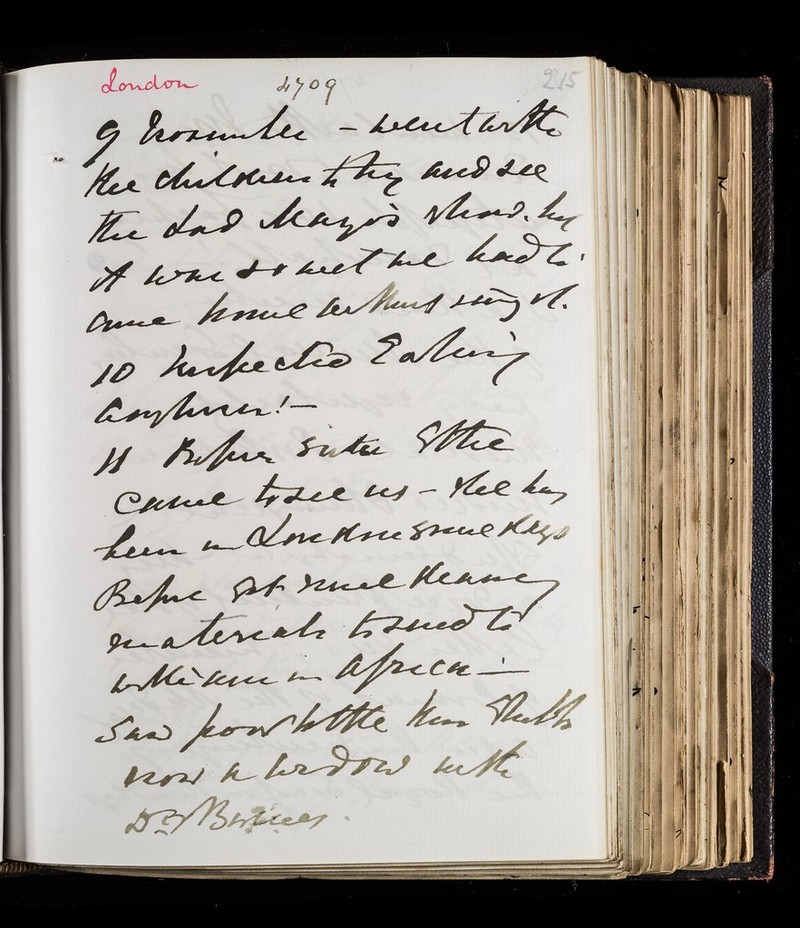 London 4709 215
9 November - went with
the children to try and see
the Lord Mayor's Show. but
it was so wet we had to
come home without seeing it.
10 Inspected Ealing
Asylum! -
11 Rosher Sister
came to see us - She has
been in London some days
Rosher got some
materials to send to
William in Africa -
Saw poor little Mrs
now a widow with